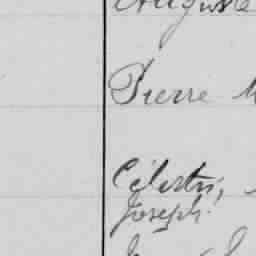 Auguste
Pierre
Célestin,
Joseph.